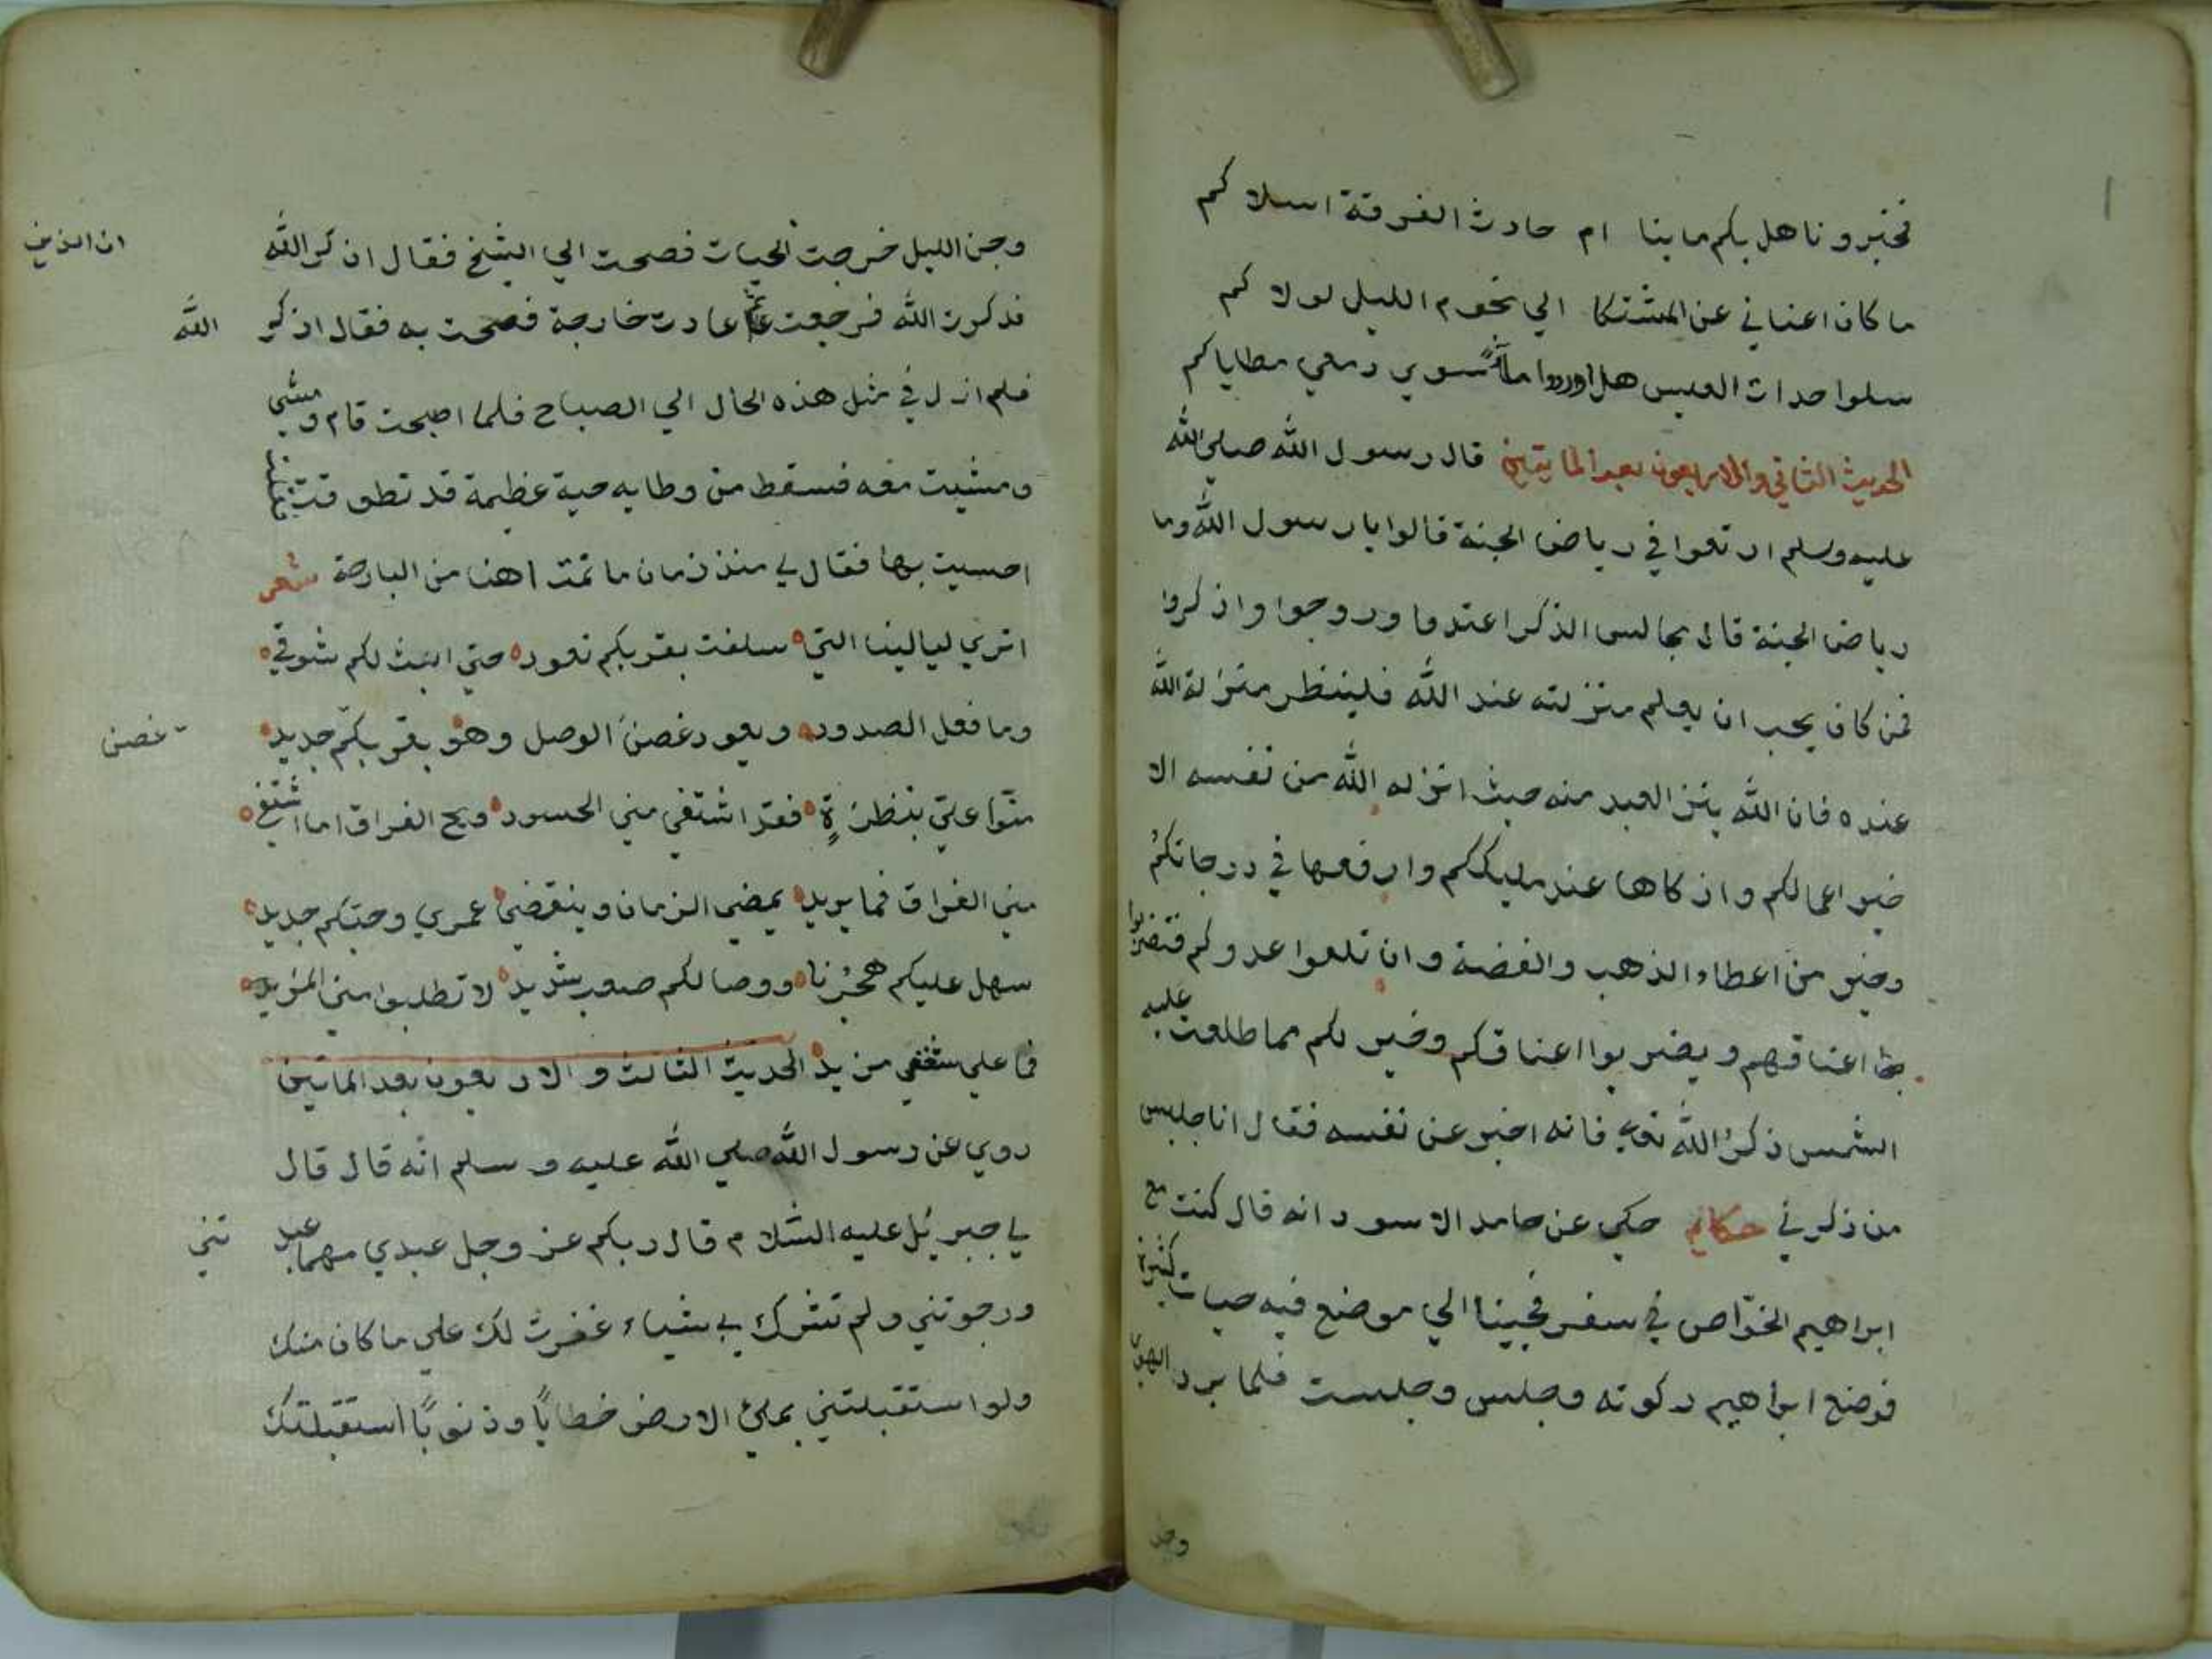 فخبرو ناهل بكم ما بنا ام حادث الفرقة اسلا كم
ما كان اعناني عن المشتكا الي نحوم الليل لولا كم
سلوا حداث العيس هل اوردوا ماء سوي دمعي مطاياكم
الحديث الثاني والاربعون بعد المايتين قال رسول الله صلي الله
عليه وسلم ارتعوا في رياض الجنة قالوا يا رسول الله وما
رياض الجنة قال مجالس الذكر اعتدوا وروحوا واذكروا
فمن كان يحب ان يعلم منزلته عند الله فلينظر منزلة الله
عنده فان الله ينزل العبد منه حيث انزله الله من نفسه الا
خير اعمالكم واذكاها عند مليككم وارفعها في درجاتكم
وخير من اعطاء الذهب والفضة وان تلقوا عدوكم فتضربوا
اعناقهم ويضربوا اعناقكم وخير لكم مما طلعت عليه
الشمس ذكر الله تعالي فانه اخبر عن نفسه فقال انا جليس
من ذكرني حكاية حكي عن حامد الاسود انه قال كنت مع
ابراهيم الخوّاص في سفر فجينا الي موضع فيه حيات كثيرة
فوضع ابراهيم ركوته وجلس وجلست فلما برد الهوا
وجن
وجن الليل خرجت الحيات فصحت الي الشيخ فقال اذكر الله
فذكرت الله فرجعت ثم عادت خارجة فصحت به فقال اذكر الله
فلم ازل في مثل هذه الحال الي الصباح فلما اصبحت قام ومشي
ومشيت معه فسقط من وطايه حية عظيمة قد تطوقت فقلت
احسيت بها فقال لي منذ زمان ما نمت اهنا من البارحة شعر
اتري ليالينا التي سلفت بقربكم تعود حتي ابث لكم شوقي
وما فعل الصدود ويعود غصن الوصل وهو بقربكم جديد
غصن
منّوا عليّ بنظرة فقد اشتفي مني الحسود ويح الفراق اما اشتفي
مني الفراق فما يريد يمضي الزمان وينقضي عمري وحبّكم جديد
سهل عليكم هجرنا ووصالكم صعب شديد لا تطلبوا مني المزيد
فما علي شغفي مزيد الحديث الثالث والاربعون بعد الماتين
روي عن رسول الله صلي الله عليه وسلم انّه قال قال
لي جبريل عليه السّلام قال ربكم عز وجل عبدي مهما عبد
تني
ورجوتني ولم تشرك بي شياء غفرت لك علي ما كان منك
ولو استقبلتني بملئ الارض خطايًا وذنوبًا استقبلتك